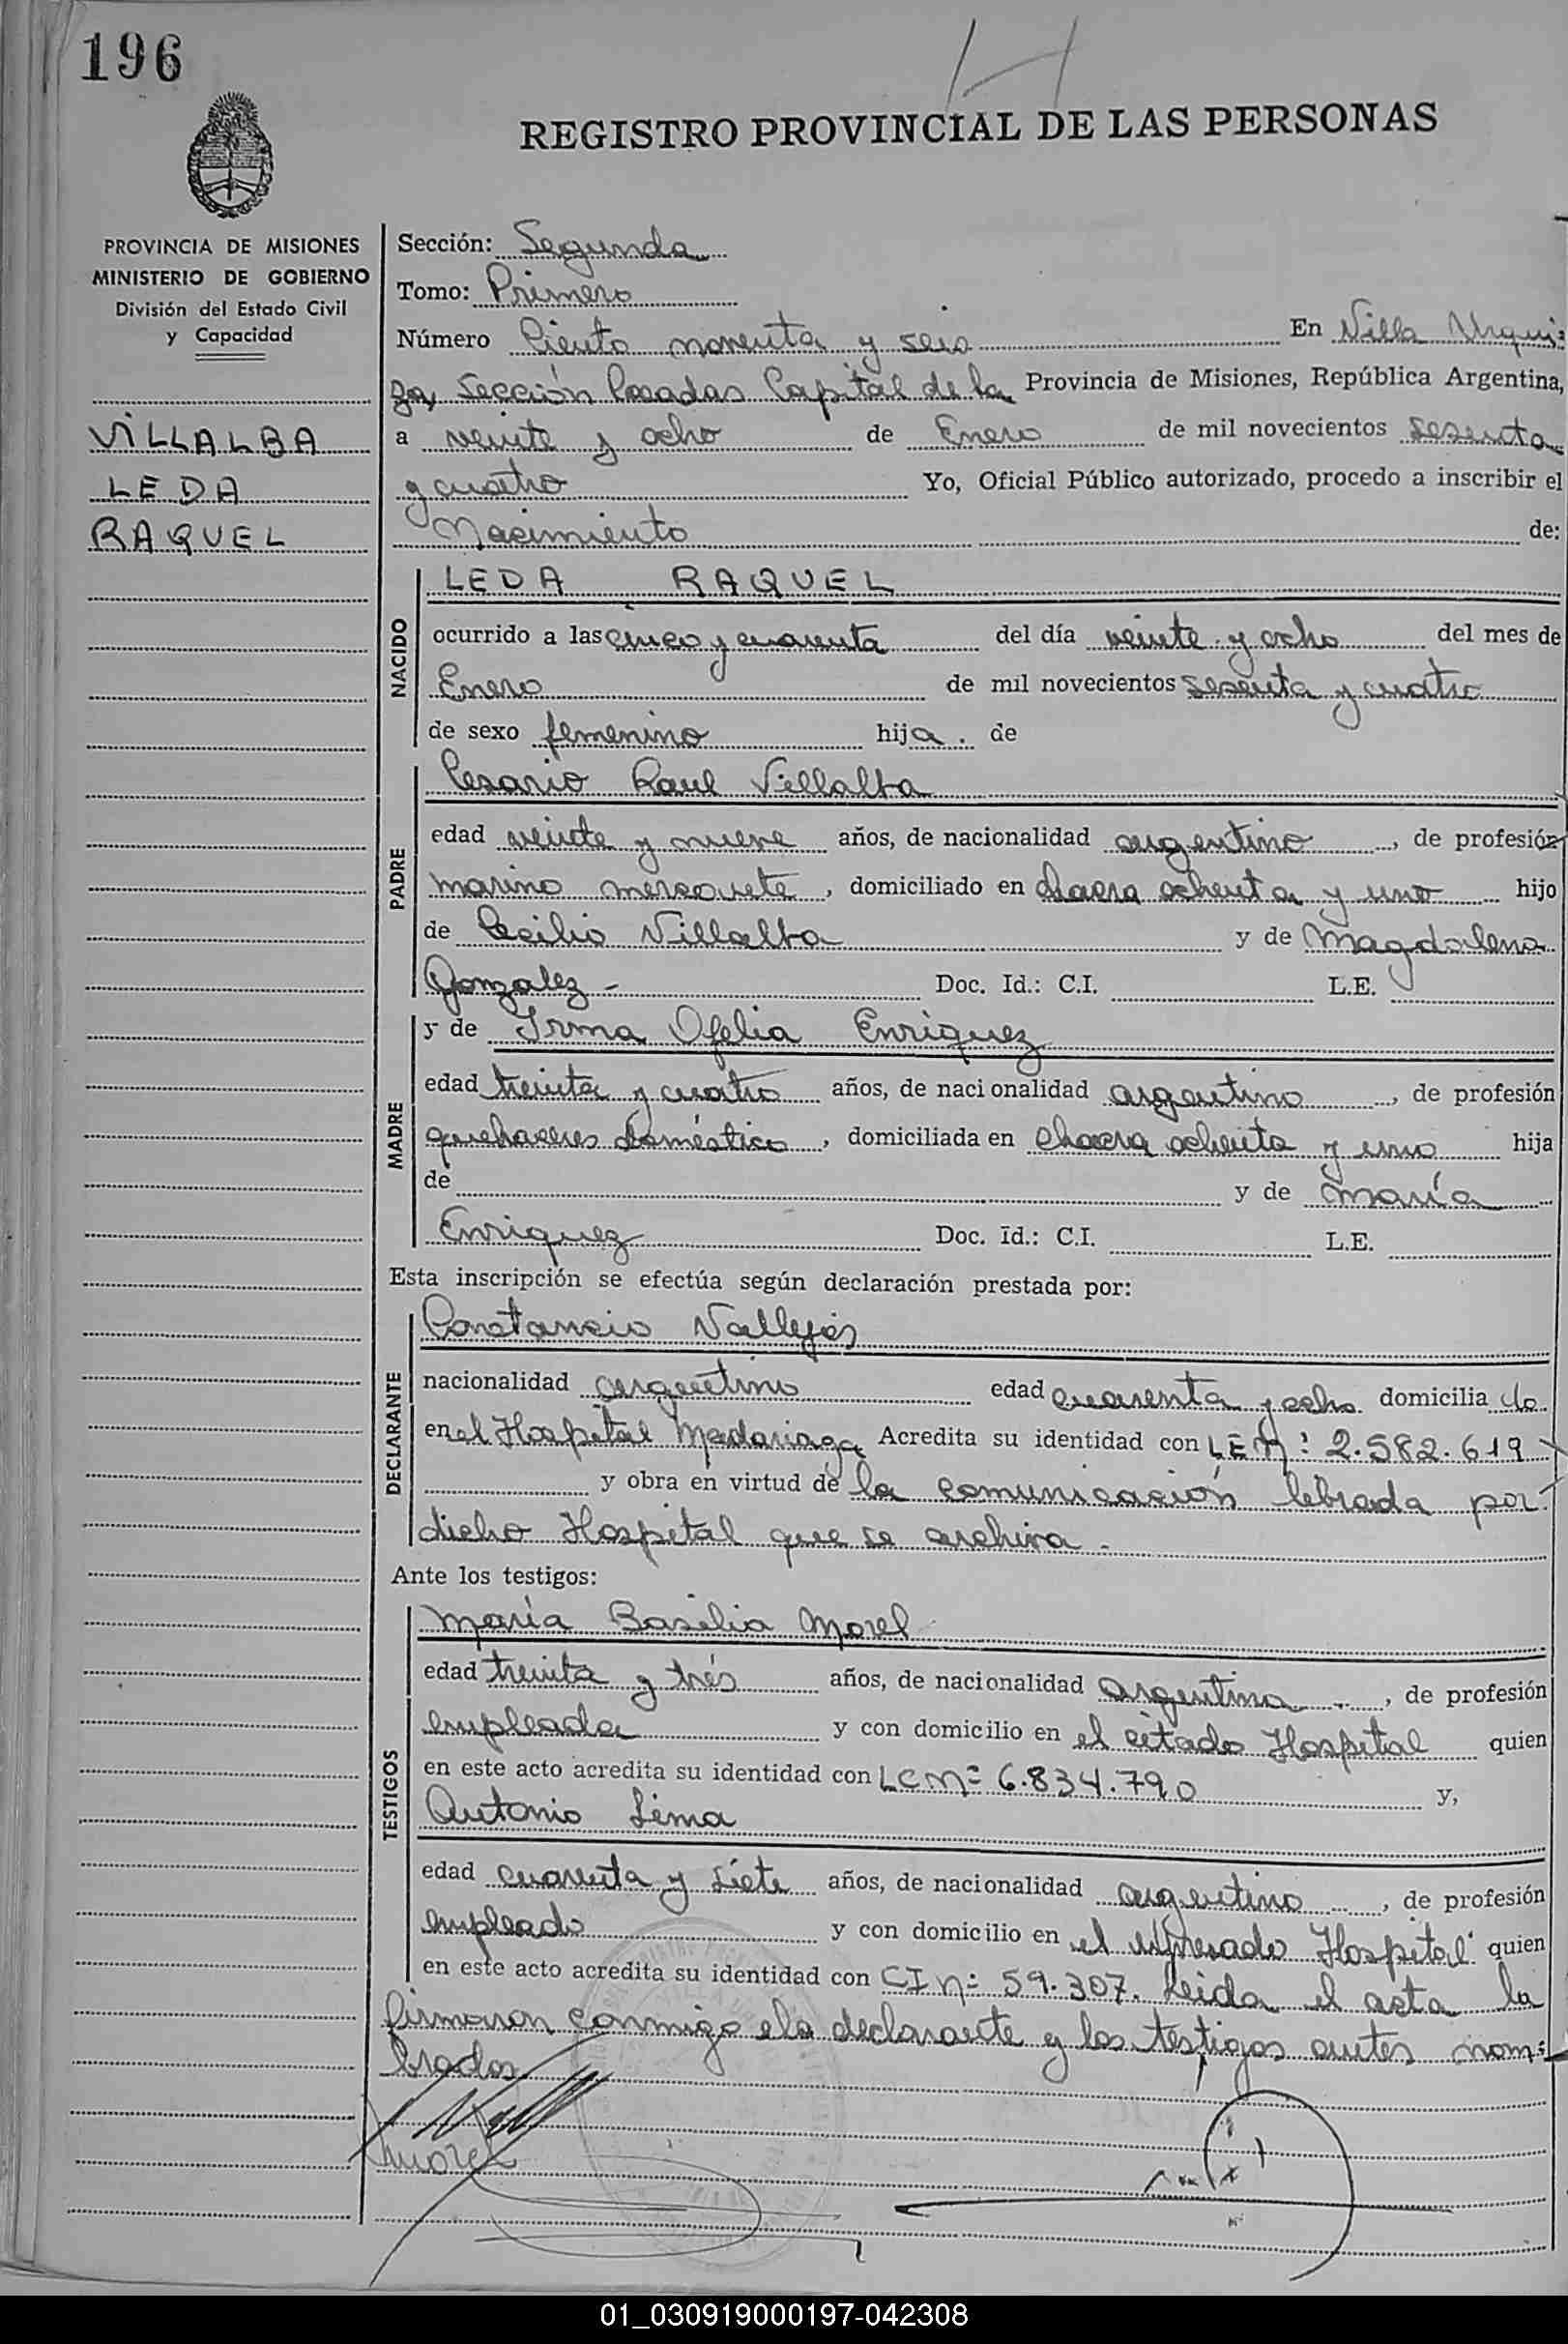 196
REGISTRO PROVINCIAL DE LAS PERSONAS
PROVINCIA DE MISIONES
MINISTERIO DE GOBIERNO
División del Estado Civil
y Capacidad
VILLALBA
LEDA
RAQUEL
Sección: Segunda
Tomo: Primero
Número Ciento noventa y seis En Villa Urqui=
za, Sección Posadas Capital de la Provincia de Misiones, República Argentina,
a veinte y ocho de Enero de mil novecientos sesenta
y cuatro Yo, Oficial Público autorizado, procedo a inscribir el
Nacimiento de:
NACIDO
LEDA RAQUEL
ocurrido a las cinco y cuarenta del día veinte y ocho del mes de
Enero de mil novecientos sesenta y cuatro
de sexo femenino hija. de
PADRE
Cesario Raul Villalba
edad veinte y nueve años, de nacionalidad argentino, de profesión
marino mercante, domiciliado en chacra ochenta y uno hijo
de Cecilio Villalba y de Magdalena
Gonzalez - Doc. Id.: C.I. L.E.
MADRE
y de Irma Ofelia Enriquez
edad treinta y cuatro años, de nacionalidad argentina, de profesión
quehaceres doméstico, domiciliada en Chacra ochenta y uno hija
de y de María
Enriquez Doc. Id.: C.I. L.E.
Esta inscripción se efectúa según declaración prestada por:
DECLARANTE
Constancio Vallejos
nacionalidad argentino edad cuarenta y ocho domicilia do
en el Hospital Madariaga Acredita su identidad con L E N: 2.582.619
y obra en virtud de la comunicación librada por
dicho Hospital que se archiva.
Ante los testigos:
TESTIGOS
María Basilia Morel
edad treinta y trés años, de nacionalidad argentina, de profesión
empleada y con domicilio en el citado Hospital quien
en este acto acredita su identidad con L C N= 6.834.790 y,
Antonio Lima
edad cuarenta y siete años, de nacionalidad argentino, de profesión
empleado y con domicilio en el expresado Hospital quien
en este acto acredita su identidad con CI N: 59.307. Leida el acta la
firmaron conmigo el declarante y los testigos antes nom=
brados
Morel
01_030919000197-042308